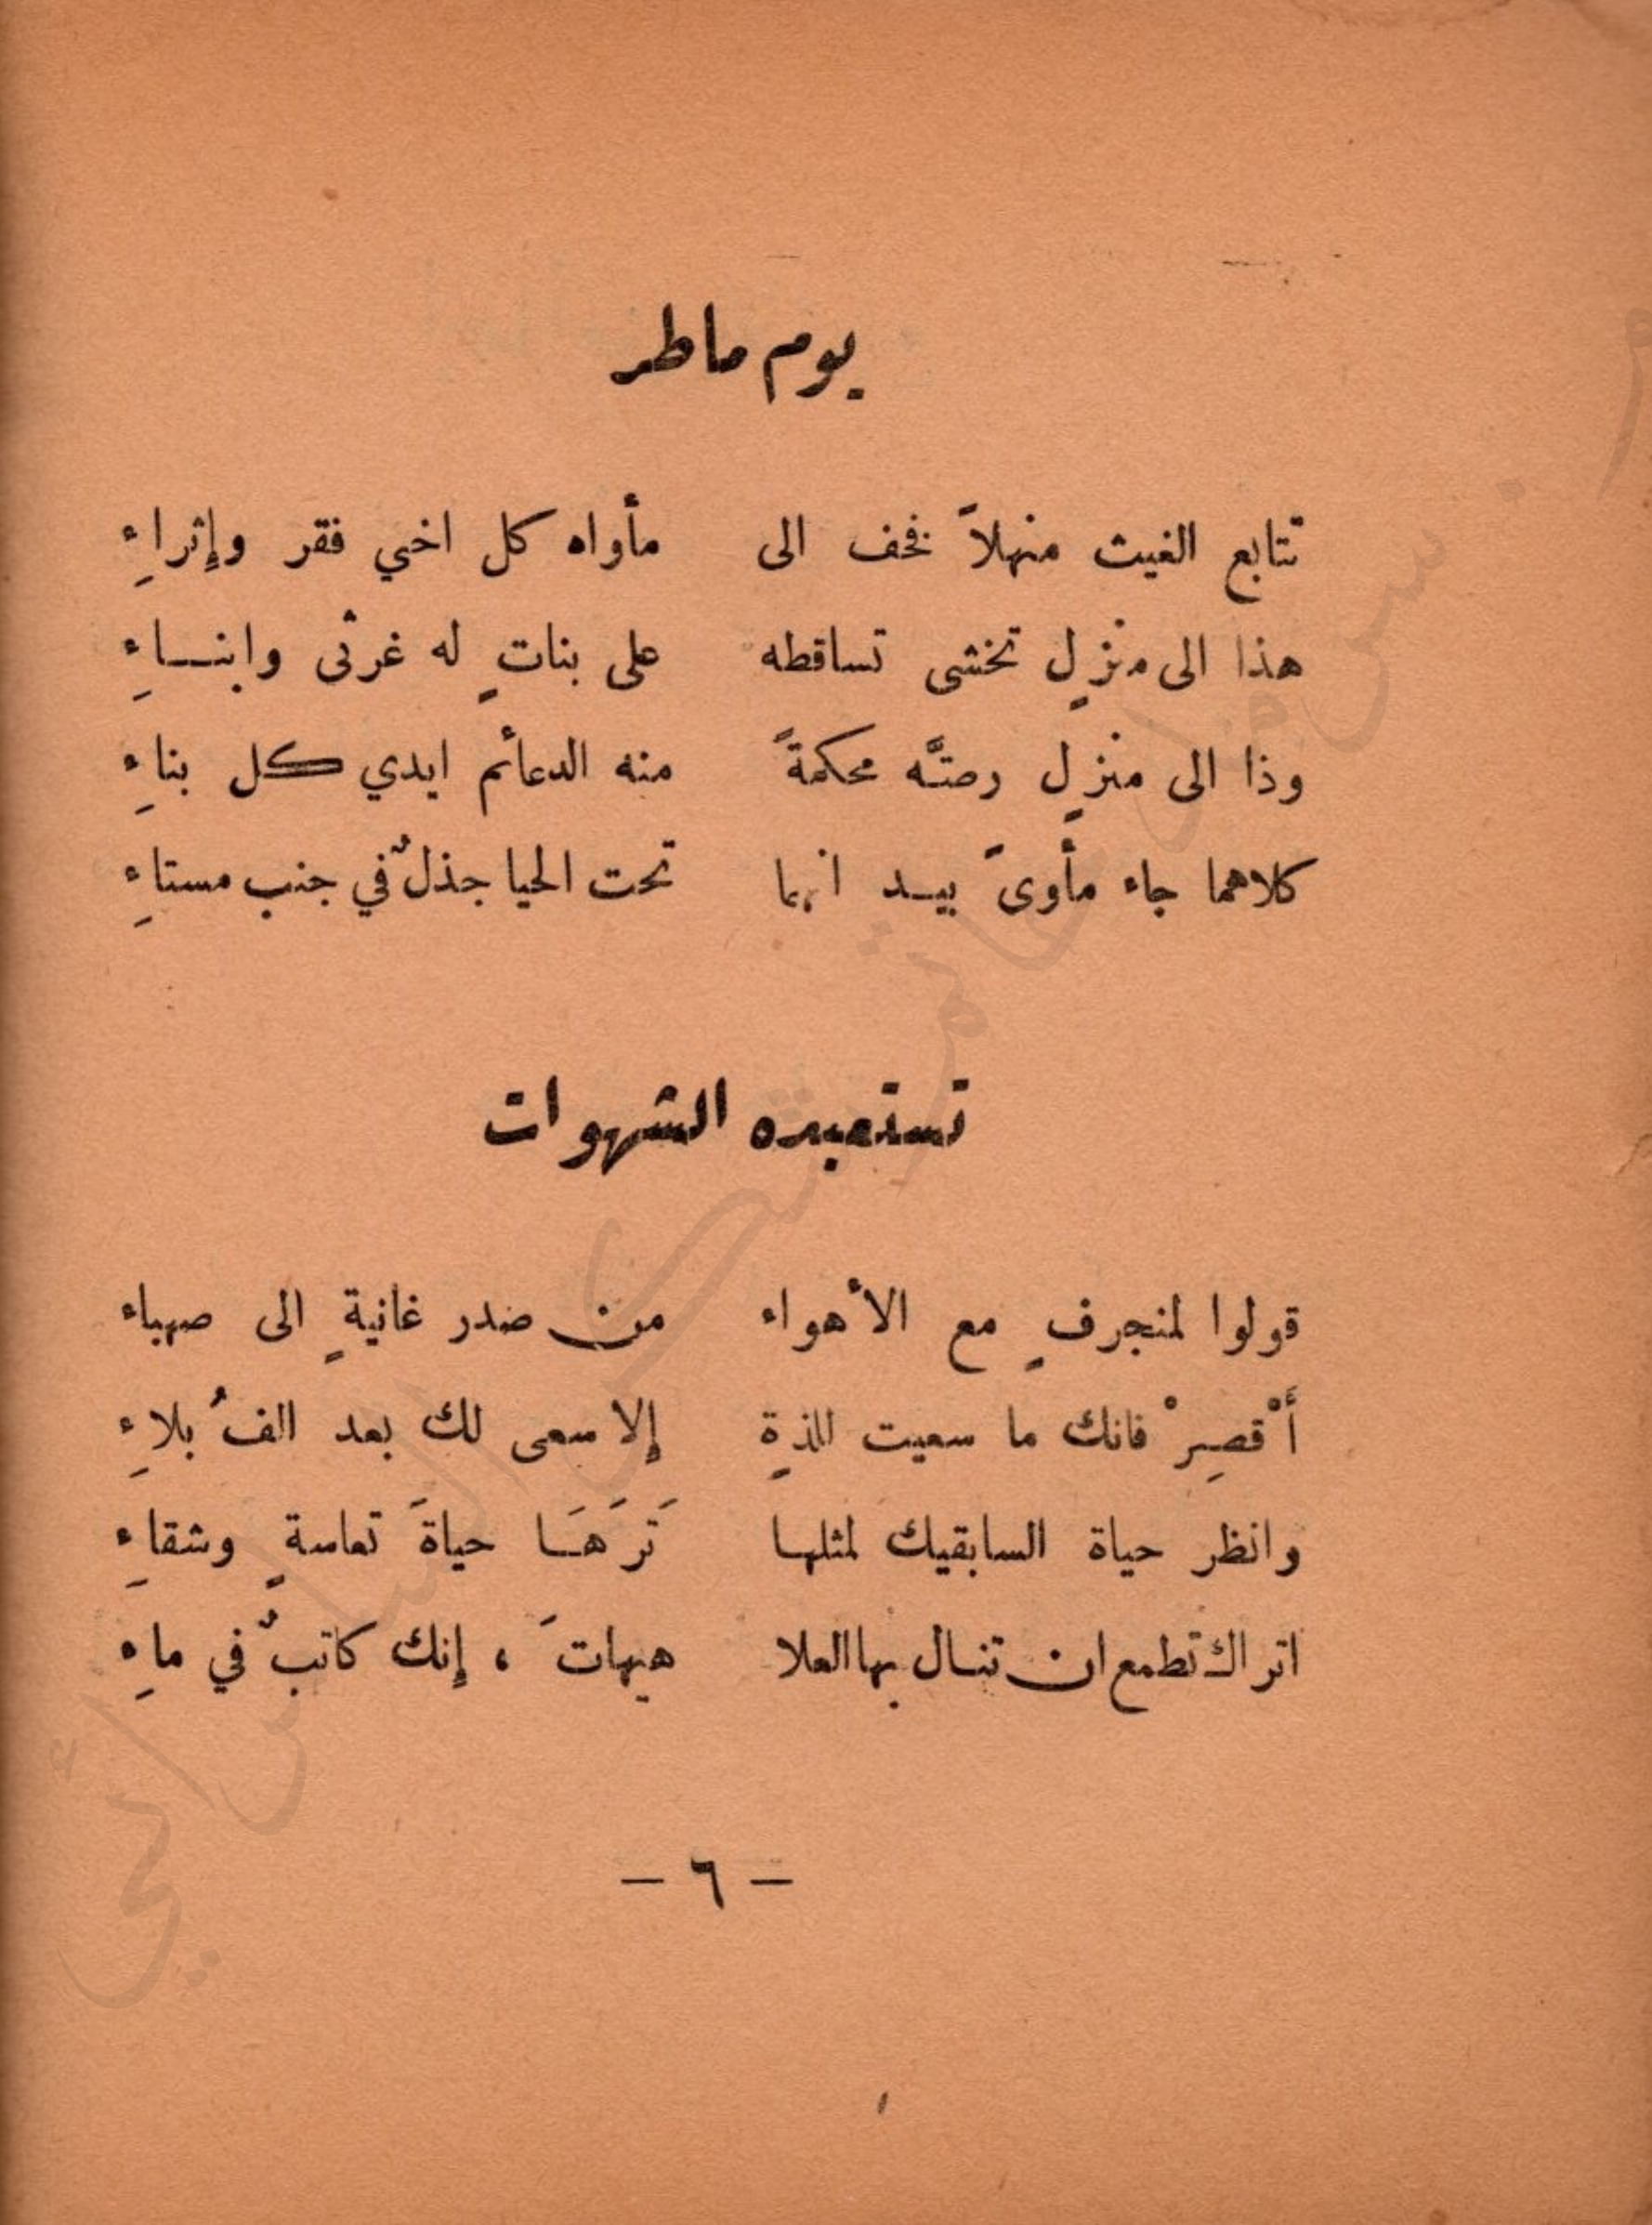 يوم ماطر
تتابع الغيث منهلاً فخف الى مأواه كل اخي فقر وإثراءِ
هذا الى منزلٍ تخشى تساقطه على بناتٍ له غرثى وابنـــاءِ
وذا الى منزلٍ رصتَّه محكمةً منه الدعائم ايدي كل بناءِ
كلاهما جاء مأوىً بيــد انهما تحت الحيا جذلٌ في جنب مستاءِ
تستعبده الشهوات
قولوا لمنجرفٍ مع الأهواء من صدر غانيةٍ الى صهباء
أَقْصِرْ فانك ما سعيت للذةٍ إلا سعى لك بعد الفُ بلاءِ
وانظر حياة السابقيك لمثلهـا تَرَهَـا حياةَ تعاسةٍ وشقاءِ
اتراك تطمع ان تنـال بها العلا هيهاتَ ، إنك كاتبٌ في ماءِ
— ٦ —